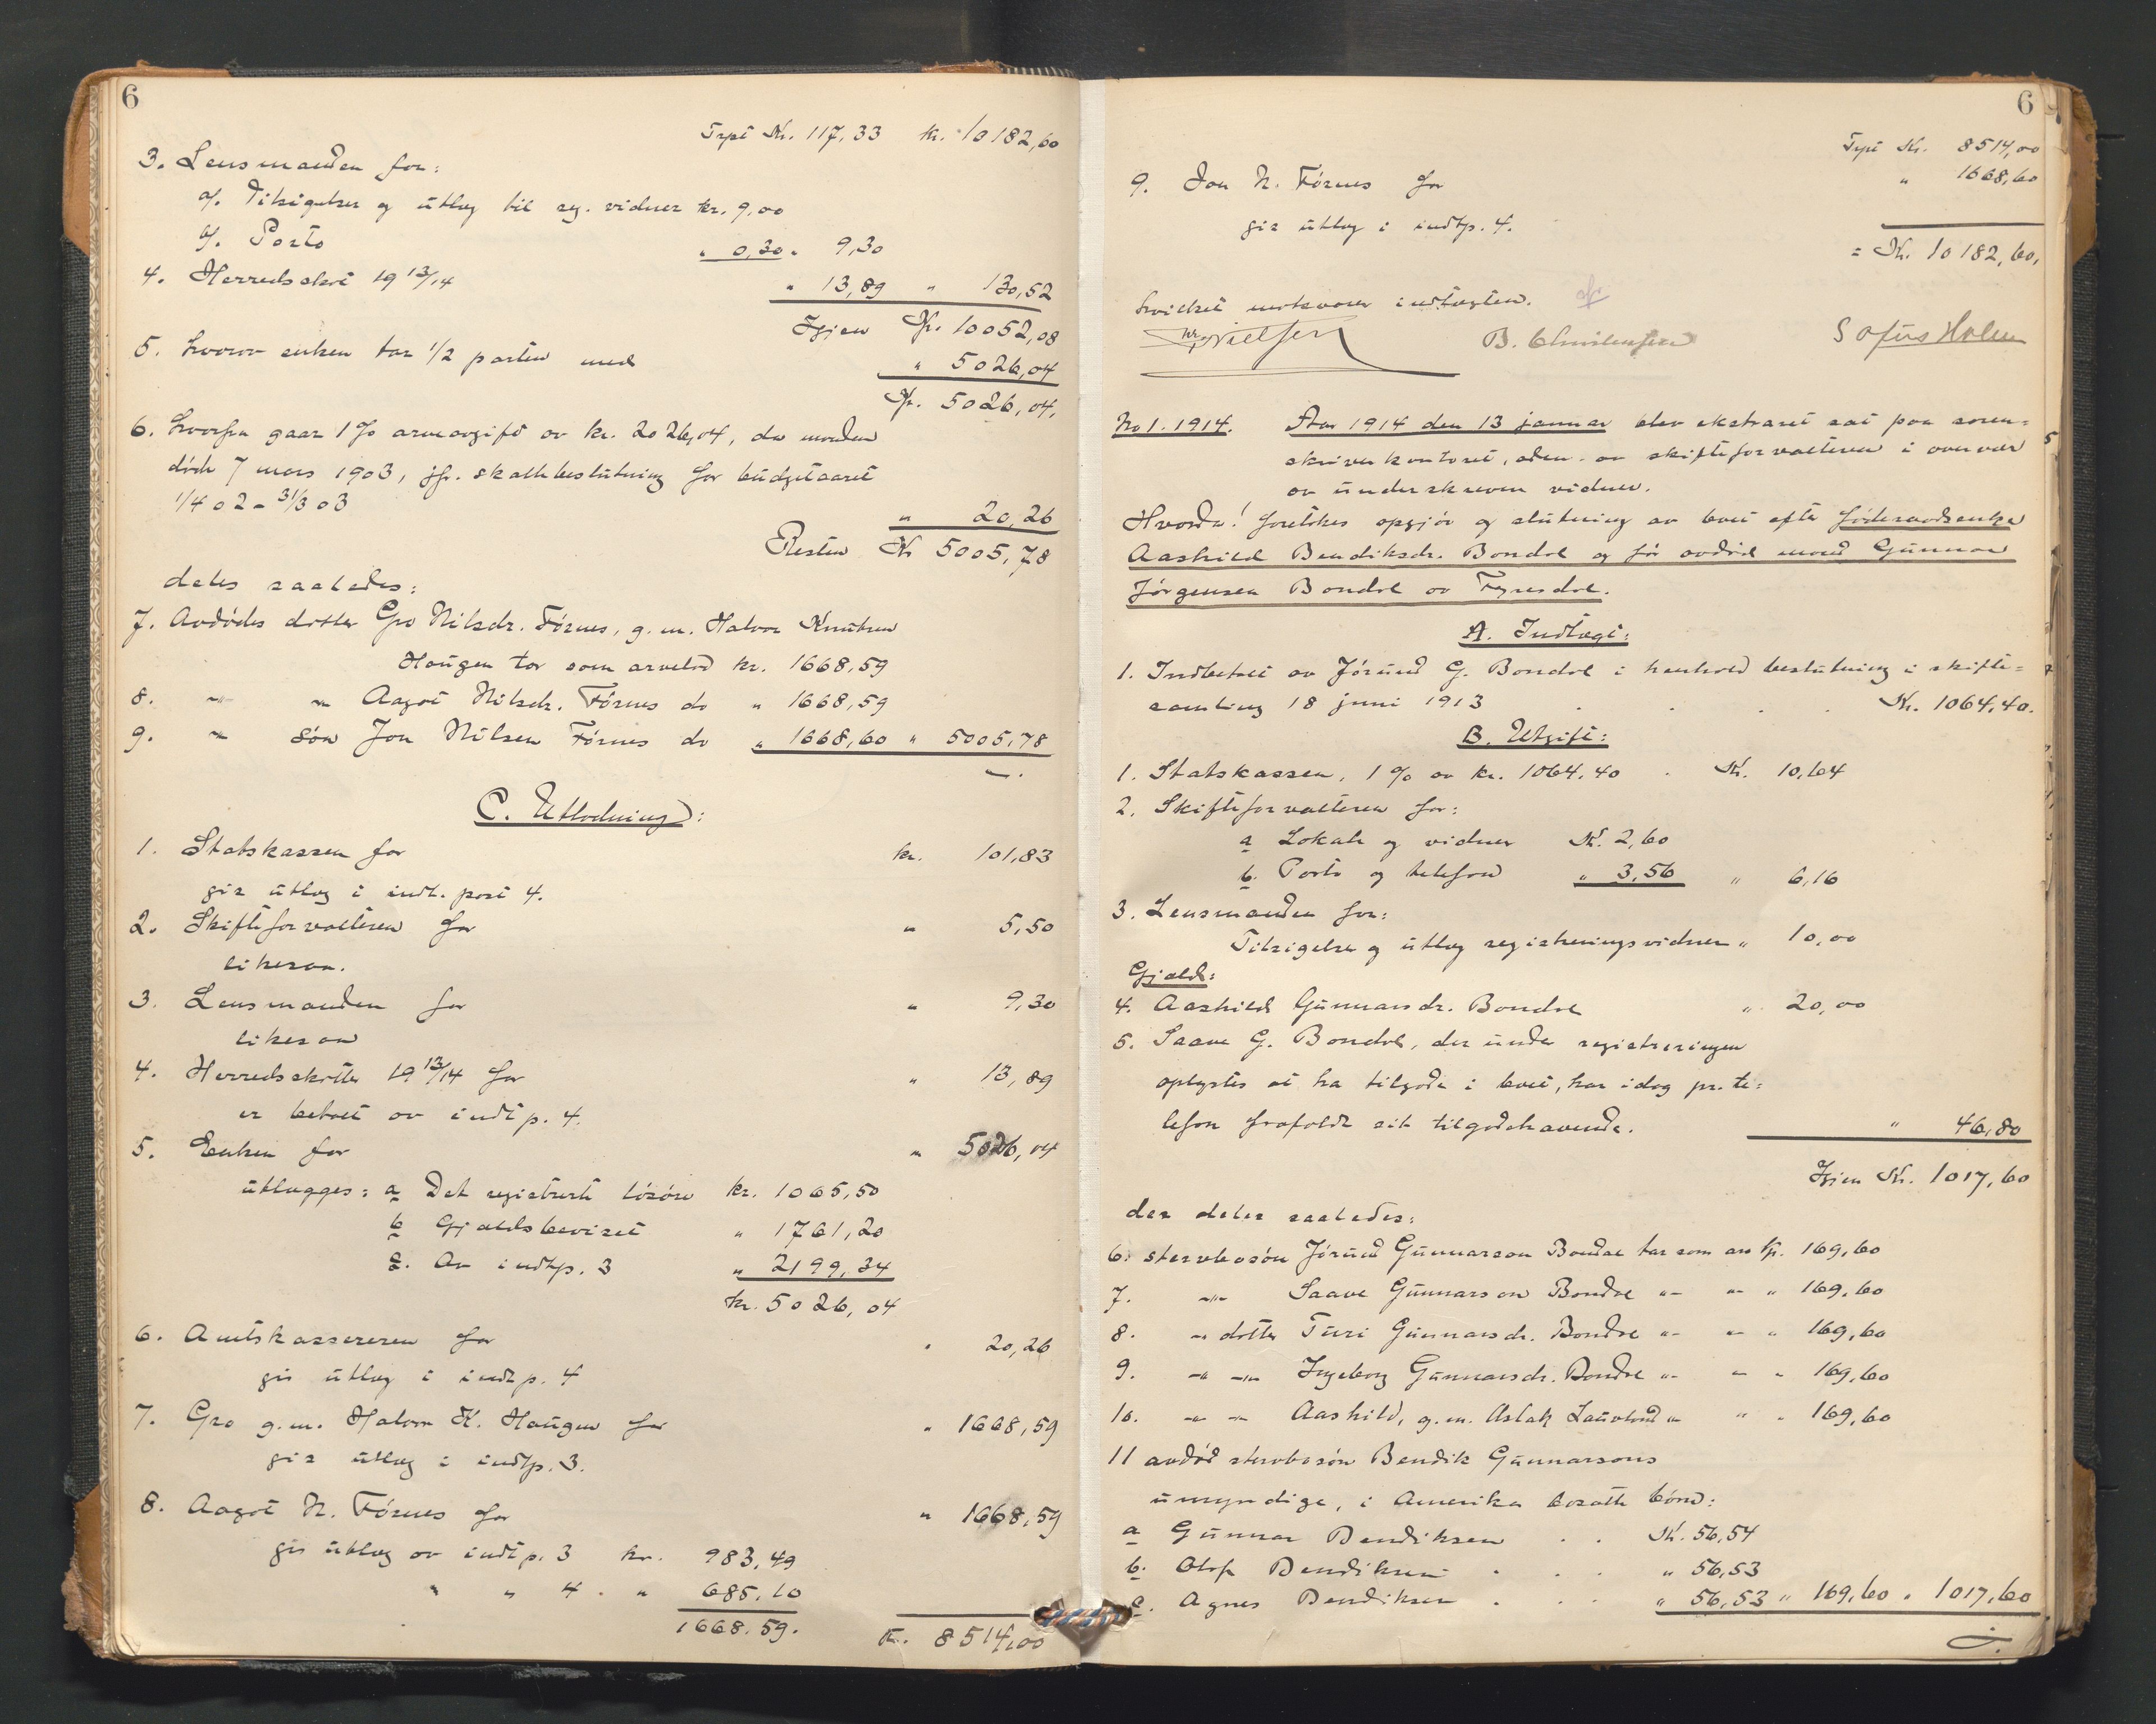 6
Trpt Kr. 117,33 kr. 10182,60
3. Lensmanden for:
a. Tilsigelser og utlæg til reg. vidner kr. 9,00
b. Porto " 0,30 " 9,30
4. Herredsskat 19 13/14 " 13,89 " 130,52
Igjen Kr. 10052,08
5. hvorav enken tar 1/2 parten med " 5026,04
Kr. 5026,04.
6. hvorfra gaar 1% arveavgift av kr. 2026,04, da manden
døde 7 mars 1903, jfr. skattebeslutning for budgetaaret
1/4 02 - 31/3 03 " 20,26
Resten Kr 5005,78
deles saaledes:
7. Avdødes datter Gro Nilsdr. Førnes, g. m. Halvor Knutsen
Haugen tar som arvelod kr. 1668,59
8. -"- " Aagot Nilsdr. Førnes do " 1668,59
9. " søn Jon Nilsen Førnes do " 1668,60 " 5005,78
C. Utlodning:
1. Statskassen for kr. 101,83
gis utlæg i indt. post 4.
2. Skifteforvalteren for " 5,50
likesaa.
3. Lensmanden for " 9,30
likesaa
4. Herredsskatten 19 13/14 for " 13,89
er betalt av indt p. 4.
5. Enken for " 5026,04
utlægges: a Det registrerte løsøre kr. 1065,50
b Gjældsbeviset " 1761,20
c. Av indtp. 3 " 2199,34
kr. 5026,04
6. Amtskassereren for " 20,26
gis utlæg i indt p. 4
7. Gro g. m. Halvor K. Haugen for " 1668,59
gis utlæg i indtp. 3.
8. Aagot N. Førnes for " 1668,59
gis utlæg av indt p. 3 kr. 983,49
" " 4 . " 685,10
1668.59.
Kr. 8514,00
6
Trpt Kr. 8514,00
9. Jon N. Førnes for " 1668,60
gis utlæg i indtp. 4.
= Kr. 10182,60.
hvilket motsvarer indtægten.
Nielsen B. Christensen Sofus Holm
No 1. 1914. Aar 1914 den 13 januar blev ekstraret sat paa soren-
skriverkontoret, aden. av skifteforvalteren i overvær
av underskrevne vidner.
Hvorda! foretokes opgjør og slutning av boet efter føderaadsenke
Aashild Bendiksdr. Bondal og før avdød mand Gunnar
Jørgensen Bondal av Fyresdal.
A. Indtægt:
1. Indbetalt av Jørund G. Bondal i henhold beslutning i skifte-
samling 18 juni 1913 . . . . Kr. 1064,40.
B. Utgift:
1. Statskassen, 1% av kr. 1064,40 . Kr. 10,64
2. Skifteforvalteren for:
a Lokale og vidner Kr. 2,60
b. Porto og telefon " 3,56 " 6,16
3. Lensmanden for:
Tilsigelse og utlæg registreringsvidner " 10,00
Gjæld:
4. Aashild Gunnarsdr. Bondal " 20,00
5. Saave G. Bondal, der under registreringen
oplystes at ha tilgode i boet, har idag pr. te-
lefon frafaldt sit tilgodehavende. " 46,80
Igjen Kr. 1017,60
der deles saaledes:
6. stervbosøn Jørund Gunnarson Bondal tar som arv kr. 169,60
7. -"- Saave Gunnarson Bondal "- "- " 169,60
8. -" datter Turi Gunnarsdr. Bondal "- "- " 169,60
9. -" -"- Ingeborg Gunnarsdr. Bondal "- "- " 169,60
10. -" -"- Aashild, g. m. Aslak "- " " 169,60
11 avdød stervbosøn Bendik Gunnarsons
umyndige, i Amerika bosatte børn:
a Gunnar Bendiksen . . Kr. 56,54
b. Olaf Bendiksen . . . " 56,53
c. Agnes Bendiksen . . . " 56,53 " 169,60 " 1017,60